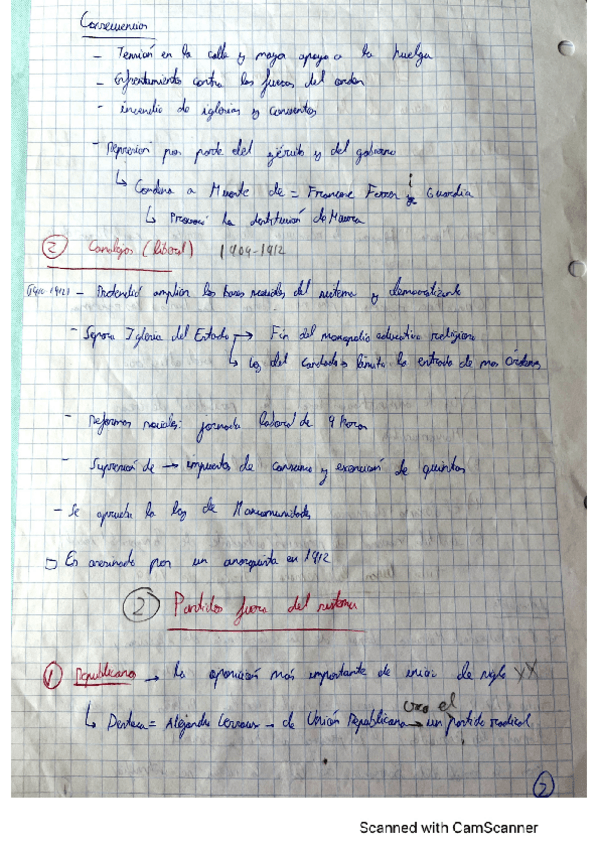 Consecuencias
- Tensión en la calle y mayor apoyo a la huelga
- Enfrentamiento contra las fuerzas del orden
- incendio de iglesias y conventos
- Represion por parte del ejército y del gobierno
↳ Condena a Muerte de = Francesc Ferrer i Guardia
↳ Provocó la destitución de Maura
② Canalejas (liberal) 1909-1912
(1910-1912) - Pretendió ampliar las bases sociales del sistema y democratizarlo
- Separa Iglesia del Estado → Fin del monopolio educativo religioso
↳ ley del candado = limita la entrada de mas órdenes
- Reformas sociales: jornada laboral de 9 horas
- Supresión de → impuestos de consumo y exención de quintas
- Se aprueba la ley de Mancomunidades
Es asesinado por un anarquista en 1912
② Partidos fuera del sistema
① Republicanos → la oposición más importante de inicios de siglo XX
↳ Destaca = Alejandro Lerroux → de Unión Republicana → crea el un partido radical
2
Scanned with CamScanner